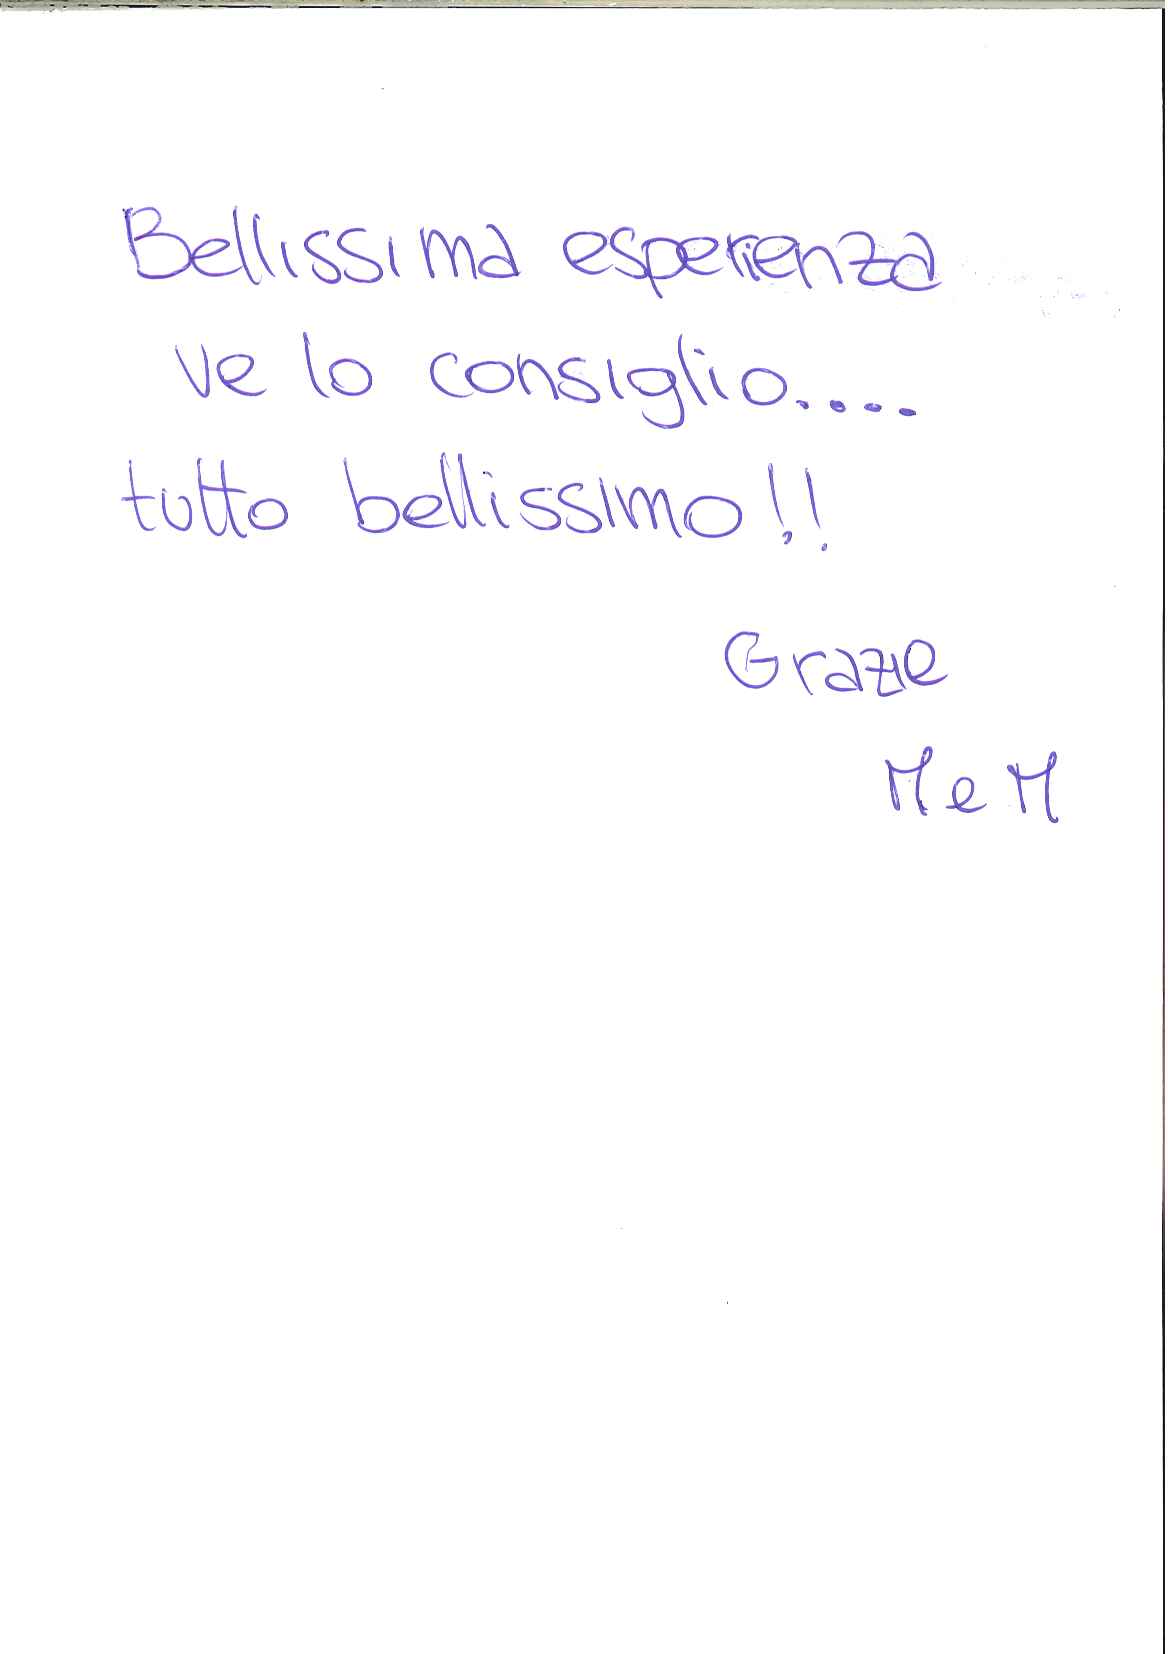 Bellissima esperienza
ve lo consiglio....
tutto bellissimo!!
Grazie
M e M